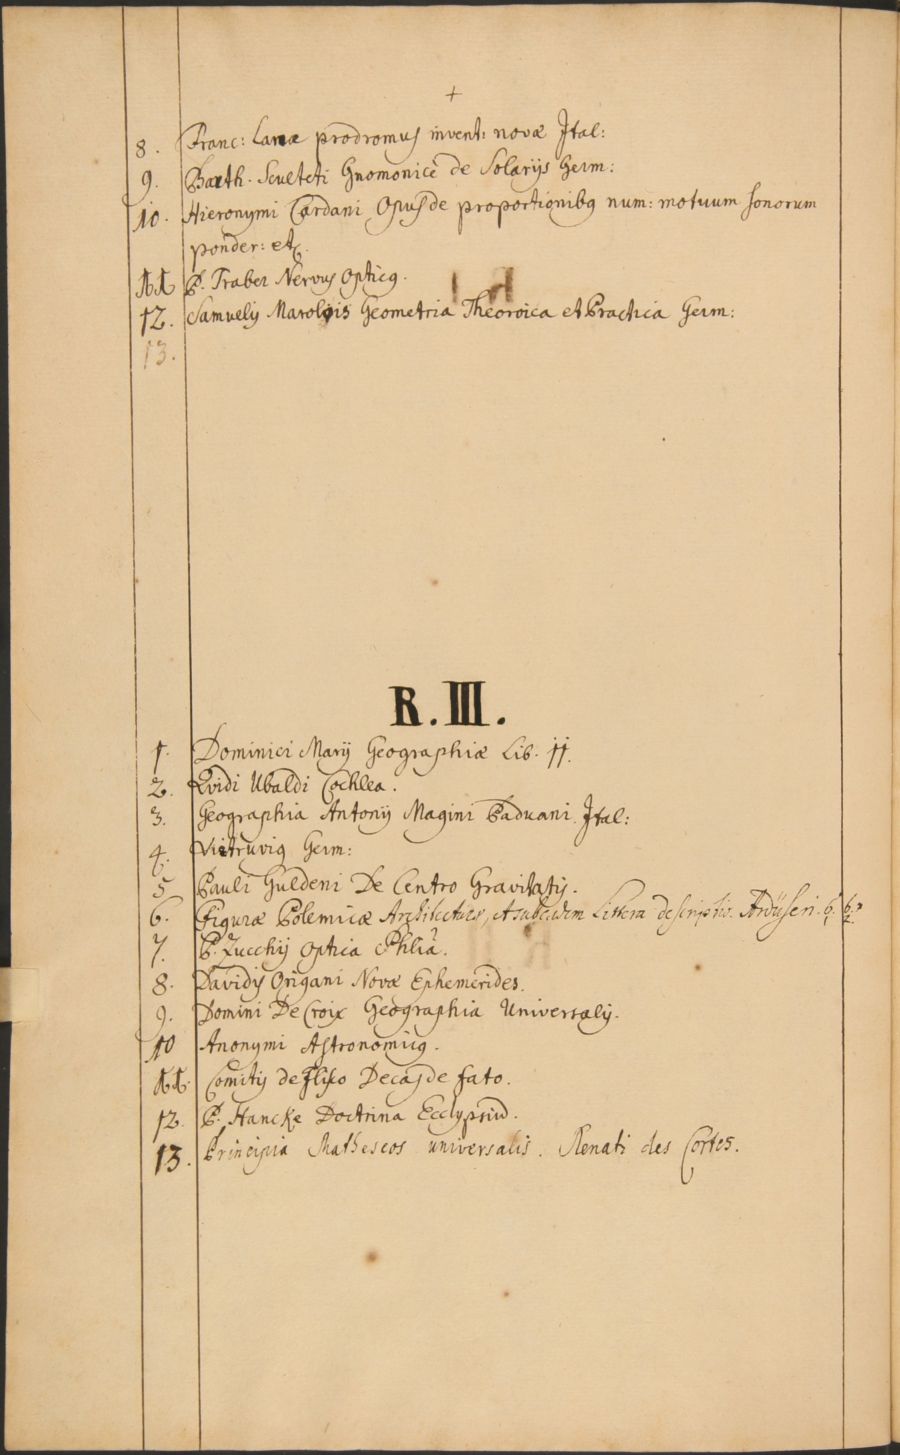 +
8. Franc: Lanæ prodromus invent: novæ Ital:
9. Barth. Sculteti Gnomonice de Solarijs Germ:
10. Hieronymi Cardani Opus de proportionibq num: motuum sonorum
ponder: etc.
11 P. Traber Nervus opticq.
12. Samuelis Marolois Geometria Theoroica et Practica Germ:
13.
R. III.
1. Dominici Marij Geographiæ Lib. jj.
2. Qvidi Ubaldi Cochlea.
3. Geographia Antonij Magini Paduani Ital:
4. Vitruviq Germ:
5 Pauli Guldeni De Centro Gravitatis.
6. Figuræ Polemicæ Architectures, et sub eadem Littera descriptio. Ardüseri. 6. 6.
7. P. Zucchij optica Philia.
8. Davidis Origani Novæ Ephemerides.
9. Domini De Croix Geographia Universalis.
10 Anonymi Astronomicq.
11. Comitis de Flisco Decas de fato.
12. P. Hancke Doctrina Ecclypsiu.
13. Principia Matheseos universalis. Renati des Cortes.